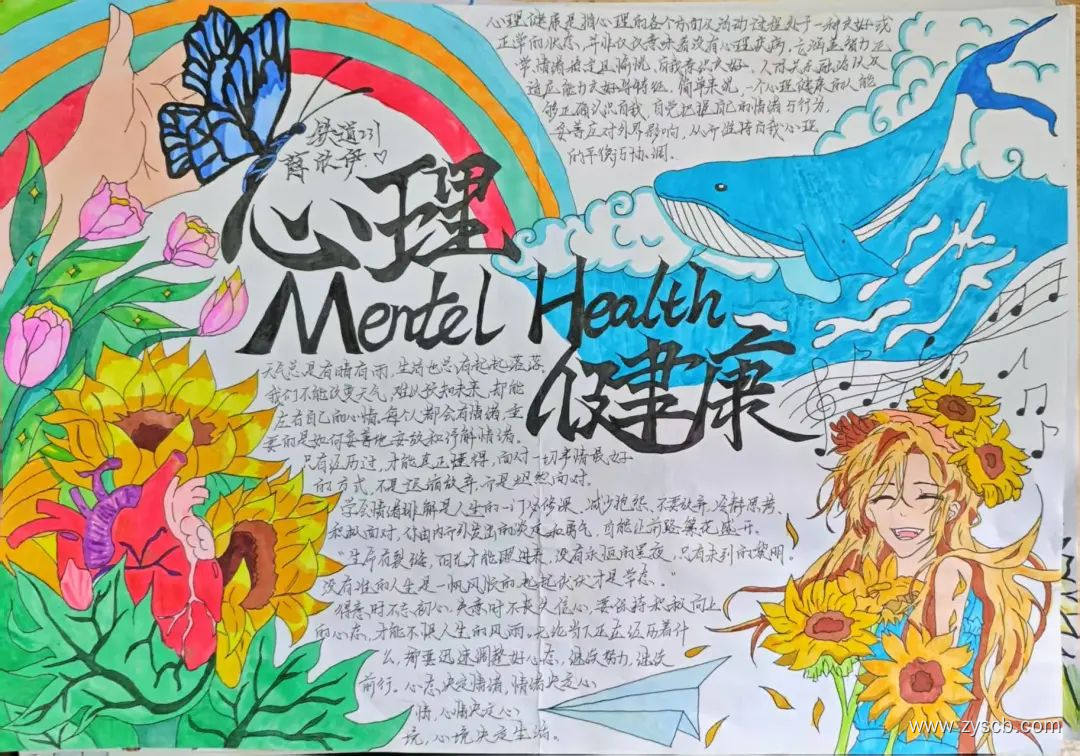 心理健康是指心理的各个方面及活动过程处于一种良好或
正常的状态，并非仅仅意味着没有心理疾病，它涵盖智力正
常、情绪稳定且愉悦、自我意识良好、人际关系融洽以及
适应能力良好等特征。简单来说，一个心理健康的人能
够正确认识自我，自觉把握自己的情绪与行为，
妥善应对外界影响，从而维持自我心理
的平衡与协调。
铁道231
薛欣伊
心理
Mentel Health
健康
天气总是有晴有雨，生活也总有起起落落，
我们不能改变天气，难以预知未来，却能
左右自己的心情。每个人都会有情绪，重
要的是如何妥善地安放和纾解情绪。
只有经历过，才能真正懂得，面对一切事情最好
的方式，不是逃避放弃，而是坦然面对。
学会情绪排解是人生的一门必修课，减少抱怨、不要放弃、冷静思考、
积极面对，你由内而外发出的淡定和勇气，可能让前路繁花盛开。
“生命有裂缝，阳光才能照进来，没有永恒的黑夜，只有未到的黎明。
没有谁的人生是一帆风顺的，起起伏伏才是常态。”
得意时不忘初心，失意时不丧失信心，要保持积极向上
的心态，才能不惧人生的风雨。无论当下正在经历着什
么，都要迅速调整好心态，继续努力，继续
前行。心态决定情绪，情绪决定心
情，心情决定心
境，心境决定生活。
www.zyscb.com